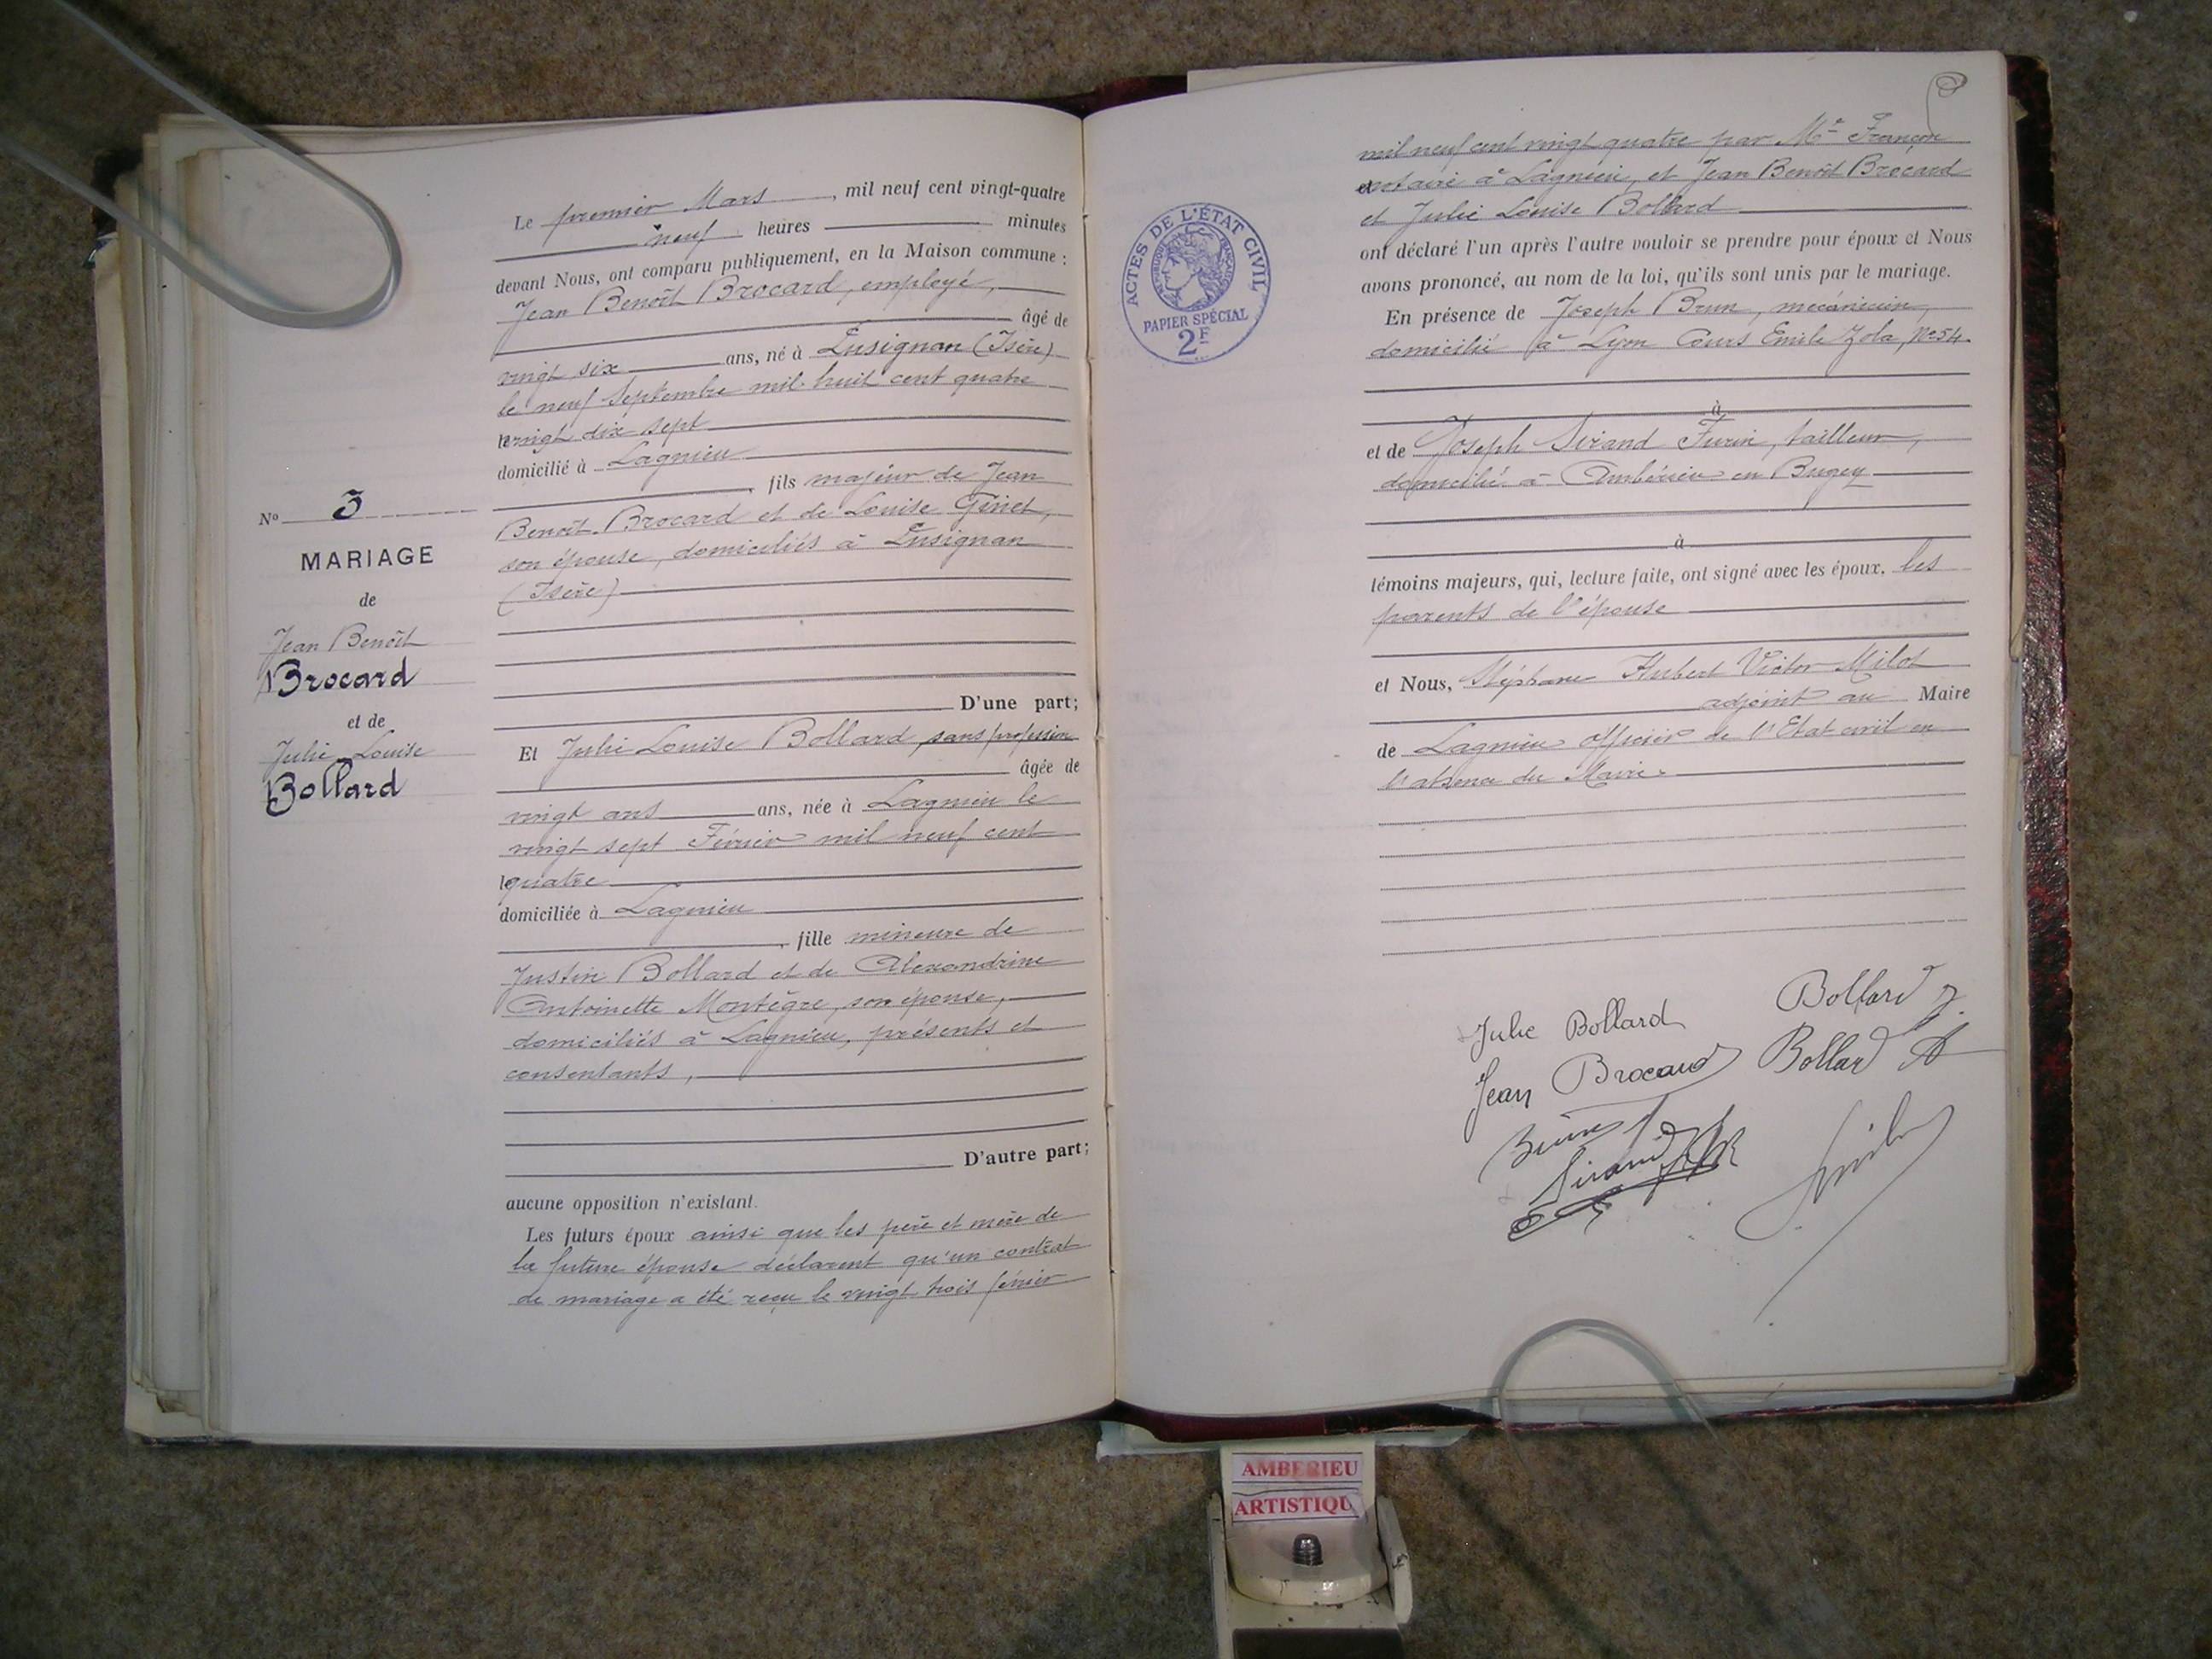 Le premier Mars, mil neuf cent vingt-quatre
neuf heures minutes
devant Nous, ont comparu publiquement, en la Maison commune :
Jean Benoît Brocard, employé,
âgé de
vingt six ans, né à Lusignan (Isère)
le neuf Septembre mil huit cent quatre
vingt dix sept
domicilié à Lagnieu
, fils majeur de Jean
Benoît Brocard et de Louise Ginet,
son épouse, domiciliés à Lusignan
(Isère)
D'une part;
Et Julie Louise Bollard, sans profession
âgée de
vingt ans ans, née à Lagnieu le
vingt sept Février mil neuf cent
quatre
domiciliée à Lagnieu
, fille mineure de
Justin Bollard et de Alexandrine
Antoinette Montègre, son épouse,
domiciliés à Lagnieu, présents et
consentants,
D'autre part;
aucune opposition n'existant.
Les futurs époux ainsi que les père et mère de
la future épouse déclarent qu'un contrat
de mariage a été reçu le vingt trois février
No 3
MARIAGE
de
Jean Benoît
Brocard
et de
Julie Louise
Bollard
mil neuf cent vingt quatre par Me Françon
notaire à Lagnieu, et Jean Benoît Brocard
et Julie Louise Bollard
ont déclaré l'un après l'autre vouloir se prendre pour époux et Nous
avons prononcé, au nom de la loi, qu'ils sont unis par le mariage.
En présence de Joseph Brun, mécanicien,
domicilié à Lyon Cours Emile Zola, No 54.
à
et de Joseph Sirand Furin, tailleur,
domicilié à Ambérieu en Bugey
à
témoins majeurs, qui, lecture faite, ont signé avec les époux, les
parents de l'épouse
et Nous, Stéphane Hubert Victor Milot
adjoint au Maire
de Lagnieu officier de l'Etat civil en
l'absence du Maire.
Julie Bollard
Bollard J.
Jean Brocard
Bollard A
Brun J
Sirand
ACTES DE L'ÉTAT CIVIL
RÉPUBLIQUE FRANÇAISE
PAPIER SPÉCIAL
2F
AMBERIEU
ARTISTIQU